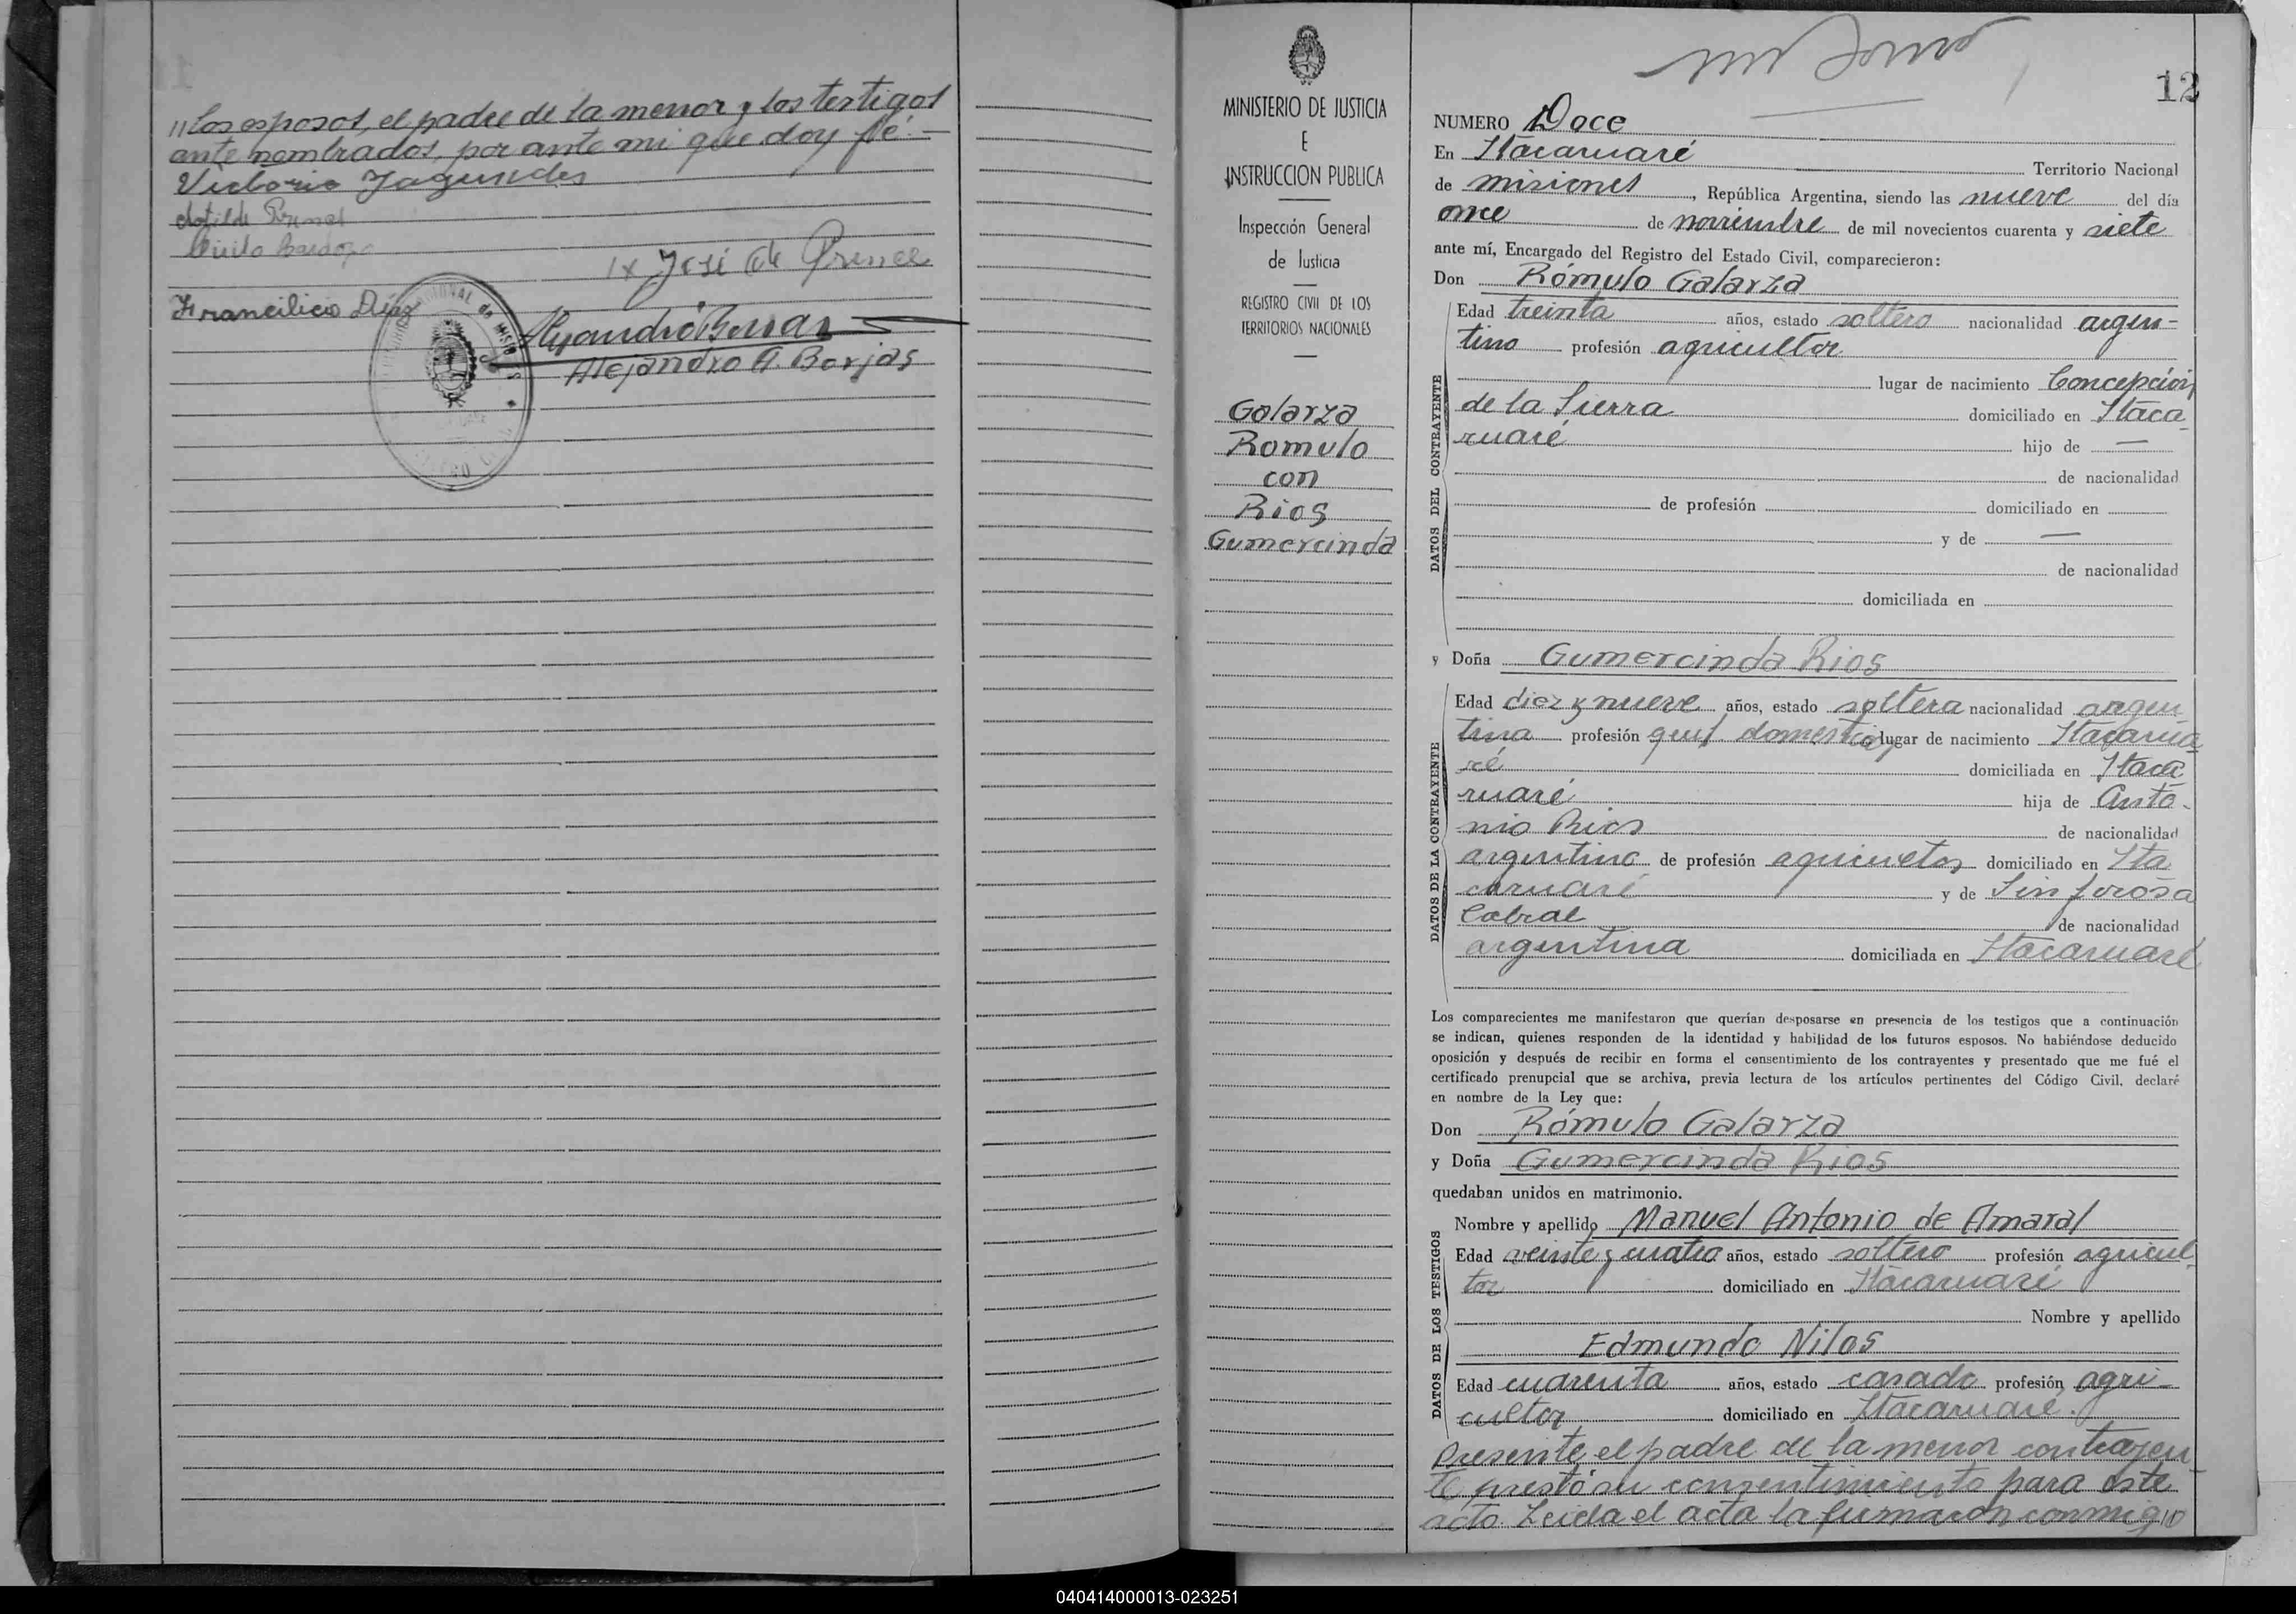 "los esposos, el padre de la menor y los testigos
ante nombrados, por ante mi que doy fé.—
Victorio Fagundes
Clotilde Prenel
José de Prenel
Francilicio Diaz
Alejandro A. Borjas
MINISTERIO DE JUSTICIA
E
INSTRUCCION PUBLICA
Inspección General
de Justicia
REGISTRO CIVIL DE LOS
TERRITORIOS NACIONALES
Galarza
Romulo
con
Rios
Gumercinda
12
NUMERO Doce
En Itacaruaré Territorio Nacional
de misiones, República Argentina, siendo las nueve del día
once de noviembre de mil novecientos cuarenta y siete
ante mí, Encargado del Registro del Estado Civil, comparecieron:
Don Rómulo Galarza
DATOS DEL CONTRAYENTE
Edad treinta años, estado soltero nacionalidad argen-
tino profesión agricultor
lugar de nacimiento Concepción
de la Sierra domiciliado en Itaca
ruaré hijo de —
de nacionalidad
de profesión domiciliado en
y de —
de nacionalidad
domiciliada en
y Doña Gumercinda Rios
DATOS DE LA CONTRAYENTE
Edad diez y nueve años, estado soltera nacionalidad argen
tina profesión quel domestico, lugar de nacimiento Itacarua
ré domiciliada en Itaca
ruaré hija de Anto-
nio Rios de nacionalidad
argentino de profesión agricultor domiciliado en Ita
caruaré y de Sinforosa
Cabral de nacionalidad
argentina domiciliada en Itacaruaré
Los comparecientes me manifestaron que querían desposarse en presencia de los testigos que a continuación
se indican, quienes responden de la identidad y habilidad de los futuros esposos. No habiéndose deducido
oposición y después de recibir en forma el consentimiento de los contrayentes y presentado que me fué el
certificado prenupcial que se archiva, previa lectura de los artículos pertinentes del Código Civil, declaré
en nombre de la Ley que:
Don Rómulo Galarza
y Doña Gumercinda Rios
quedaban unidos en matrimonio.
DATOS DE LOS TESTIGOS
Nombre y apellido Manuel Antonio de Amaral
Edad veinte y cuatro años, estado soltero profesión agricul
tor domiciliado en Itacaruaré
Nombre y apellido
Edmundo Nilos
Edad cuarenta años, estado casado profesión agri-
cultor domiciliado en Itacaruaré.
Presente el padre de la menor contrayen
te prestó su consentimiento para este
acto. Leida el acta la firmaron conmigo
040414000013-023251